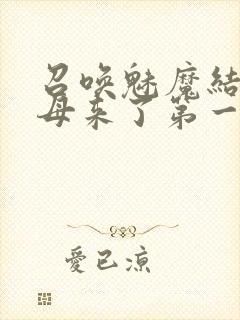 召唤魅魔結
母来了第一
愛已凉